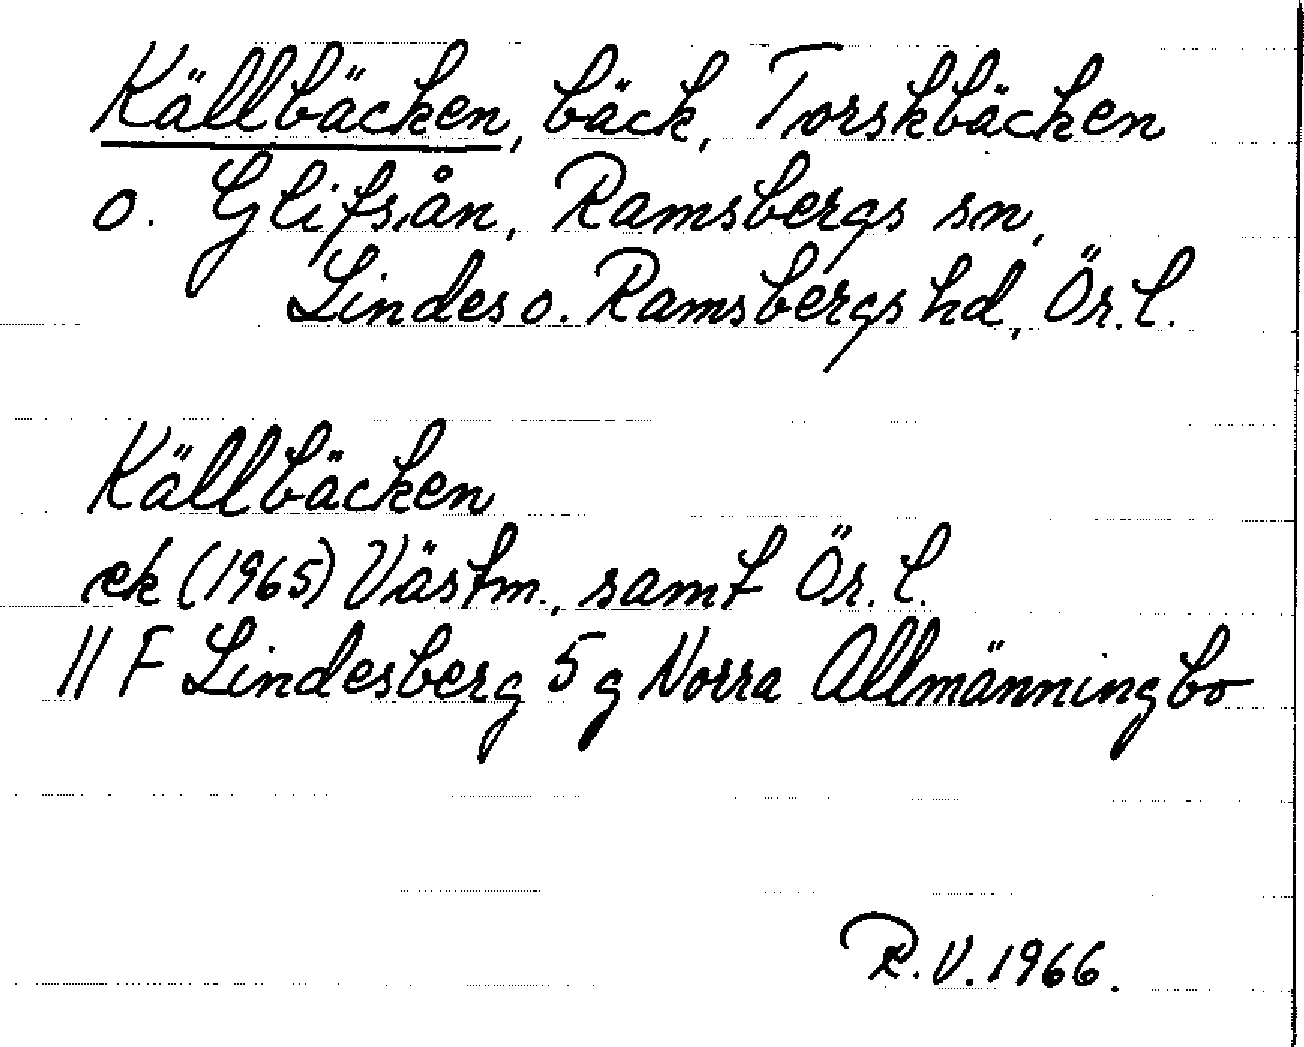 Källbäcken, bäck, Torskbäcken
o. Glifsån, Ramsbergs sn,
Lindes o. Ramsbergs hd, Ör. l.
Källbäcken
ek (1965) Västm., samt Ör. l.
11 F Lindesberg 5 g Norra Allmänningbo
R.V. 1966.